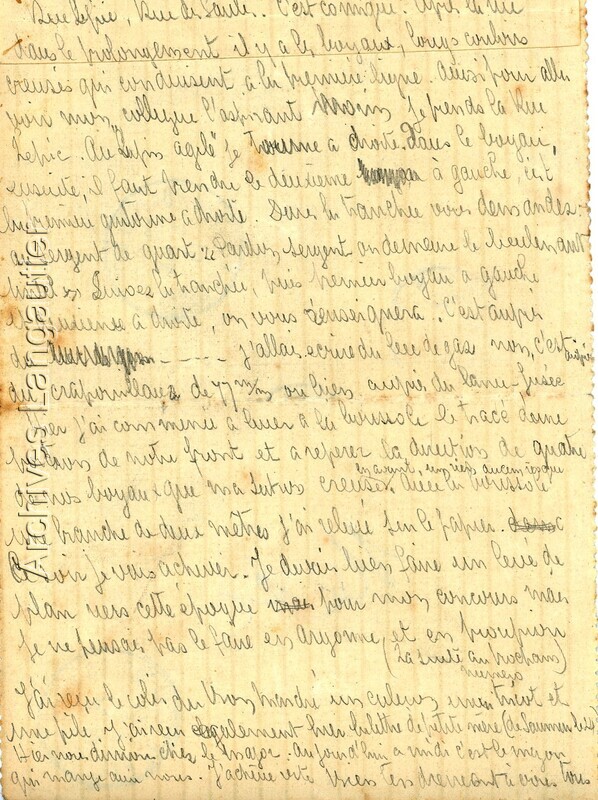 Rue Lepic, Rue de Saule. C'est comique. Après la rue
dans le prolongement il y a les boyaux, longs couloirs
creusés qui conduisent à la première ligne. Ainsi pour aller
voir mon collègue l'aspirant je prends la Rue
Lepic. Au Lapin agile je tourne à droite dans le boyau,
ensuite, il faut prendre le deuxième à gauche, c'est
la première à droite. Dans la tranchée vous demandez
au sergent de quart : Pardon, sergent où demeure le lieutenant
Suivez la tranchée, puis premier boyau à gauche
à droite, on vous renseignera. C'est auprès
de ---- j'allais écrire du bec de gaz non, c'est auprès
du crapouillaud de 77 m/m ou bien auprès du lance-fusée
j'ai commencé à lever à la boussole le tracé d'une
de notre front et à repérer la direction de quatre
en avant,
de nos boyaux que ma section creuse. avec la boussole
une branche de deux mètres j'ai relevé sur le papier.
Ce soir je vais achever. Je devais bien faire un levé de
plan vers cette époque pour mon concours mais
je ne pensais pas le faire en Argonne, et en
(La suite au prochain
numéro)
J'ai reçu le colis du Bon Marché un caleçon, un tricot et
une pile. J'ai reçu également hier la lettre de petite mère (de Saumur
Hier nous dînions chez le major. Aujourd'hui à midi c'est le major
qui mange avec nous. J'achève cette
Archives Langautier